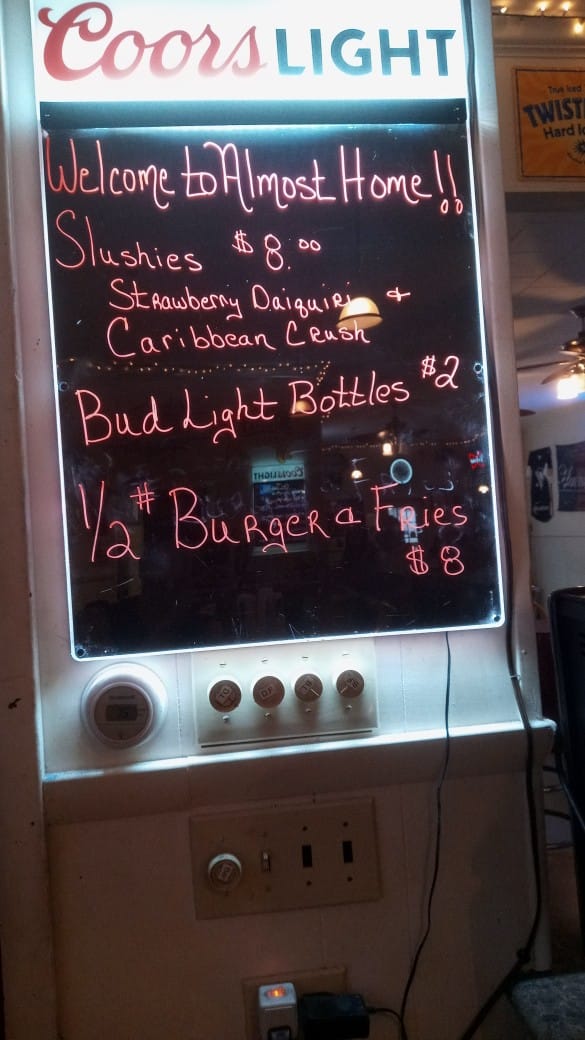 Coors LIGHT
Welcome to Almost Home!!
Slushies $8.00
Strawberry Daiquiri &
Caribbean Crush
Bud Light Bottles $2
1/2# Burger & Fries
$8
Hard